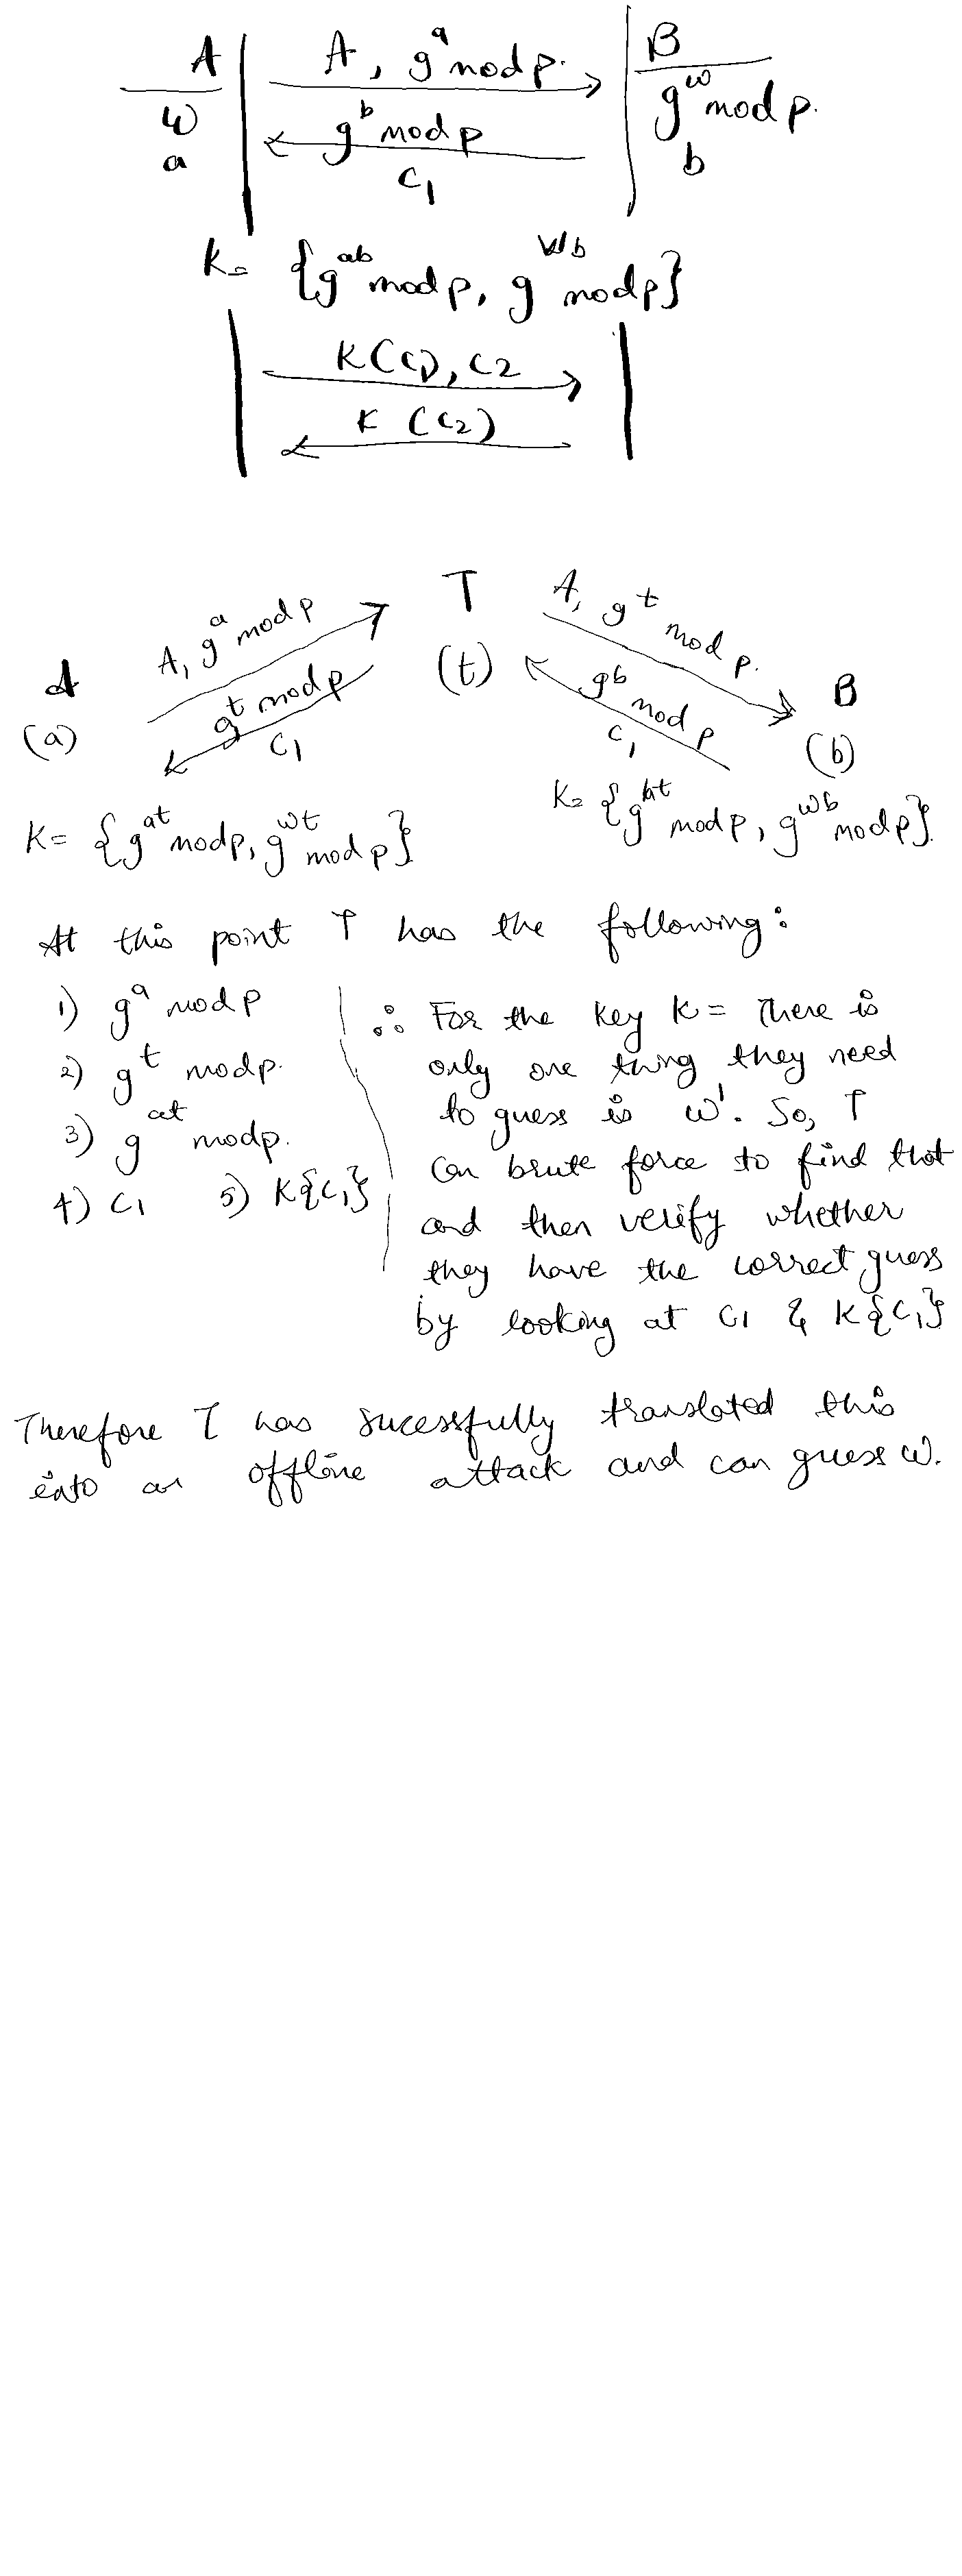 A | A, g^a mod p. | B
W | g^b mod p | g^w mod p.
a | C1 | b
K = {g^ab mod p, g^wb mod p}
K(C1), C2
K (C2)
T
A, g^a mod p
A, g^t mod p.
A
(t)
B
g^t mod p
g^b mod p
(a)
C1
C1
(b)
K= {g^at mod p, g^wt mod p}
K= {g^bt mod p, g^wb mod p}
At this point T has the following:
1) g^a mod p
2) g^t mod p.
3) g^at mod p.
4) C1 5) K{C1}
∴ For the key K = There is
only one thing they need
to guess is w'. So, T
can brute force to find that
and then verify whether
they have the correct guess
by looking at C1 & K{C1}
Therefore T has sucessfully translated this
into an offline attack and can guess W.